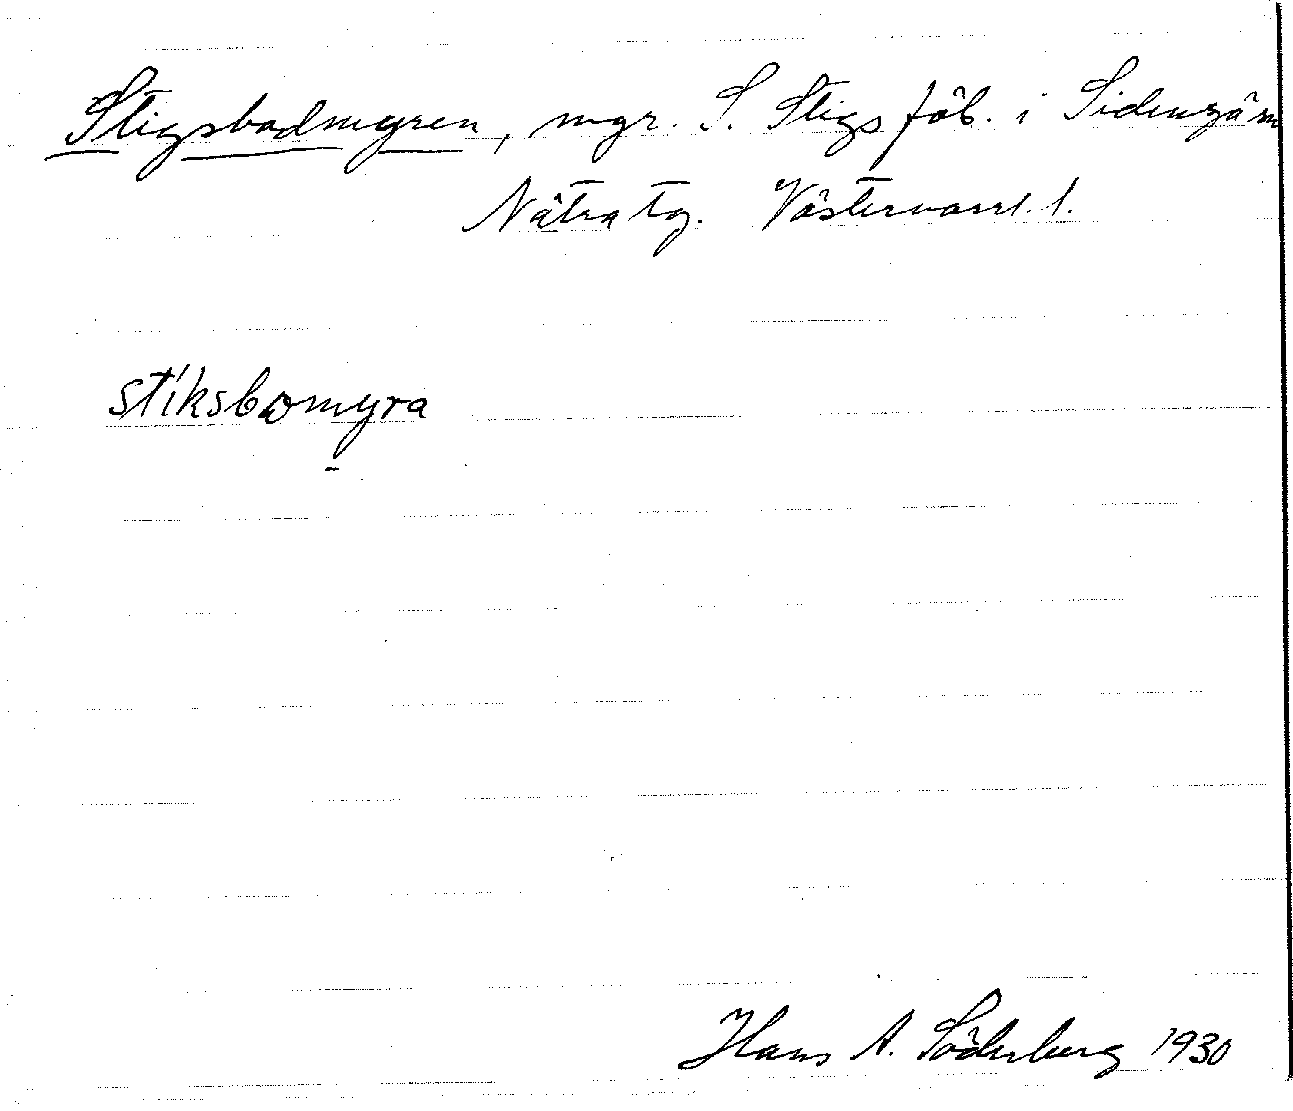 Stigsbodmyren, myr. S. Stigs fäb. i Sidensjö sn
Nätra tg. Västernorrl. l.
stiksbomyra
Hans A. Söderberg 1930